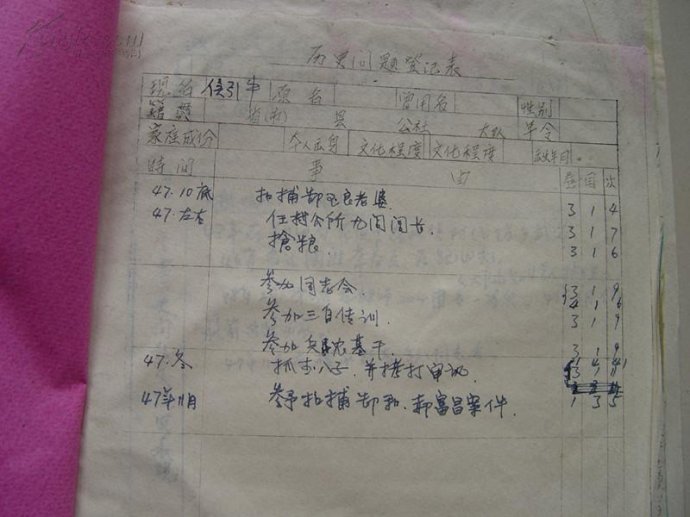 历史问题登记表
现名 侯引牛 原名 曾用名 性别
籍贯 省(市) 县 公社 大队 年令
家庭成份 个人出身 文化程度 文化程度
时间 事 由 卷 百 次
47.10底 拍捕郜 良老婆 3 1 4
47.左右 任村公所 闾闾长. 3 1 7
搶粮 3 1 6
参加同志会. 3 1 9
4 1 6
参加三自传训. 3 1 9
参加 基干. 3 1 9
47.冬 抓 八子, 并拷打审讯
47年11月 参予拍捕郜 . 郝富昌案件. 1 3 5